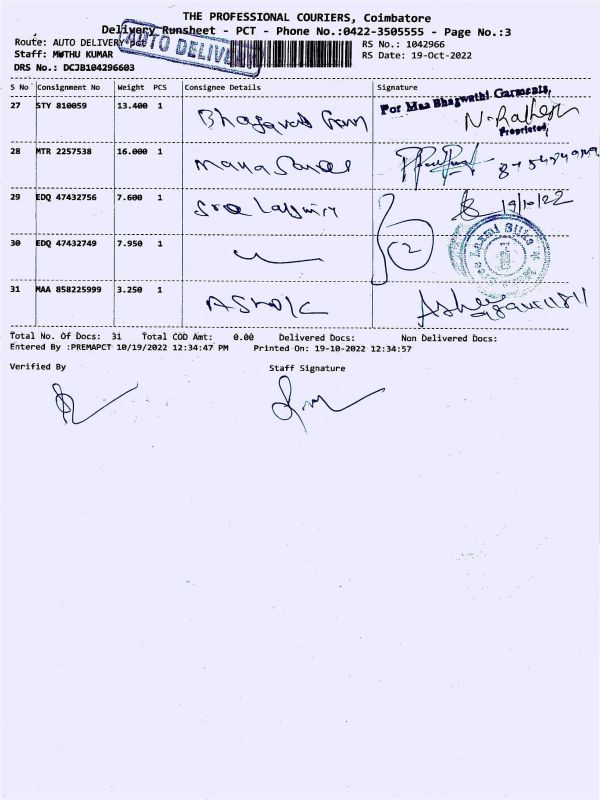 THE PROFESSIONAL COURIERS, Coimbatore
Delivery Runsheet - PCT - Phone No.:0422-3505555 - Page No.:3
Route: AUTO DELIVERY pct AUTO DELIVERY RS No.: 1042966
Staff: MUTHU KUMAR RS Date: 19-Oct-2022
DRS No.: DCJB104296603
S No Consignment No Weight PCS Consignee Details Signature
27 STY 810059 13.400 1 For Maa Bhagwathi Garments,
Proprietor
28 MTR 2257538 16.000 1
29 EDQ 47432756 7.600 1 19/10/22
30 EDQ 47432749 7.950 1 2
31 MAA 858225999 3.250 1 ASHOK
Total No. Of Docs: 31 Total COD Amt: 0.00 Delivered Docs: Non Delivered Docs:
Entered By :PREMAPCT 10/19/2022 12:34:47 PM Printed On: 19-10-2022 12:34:57
Verified By Staff Signature